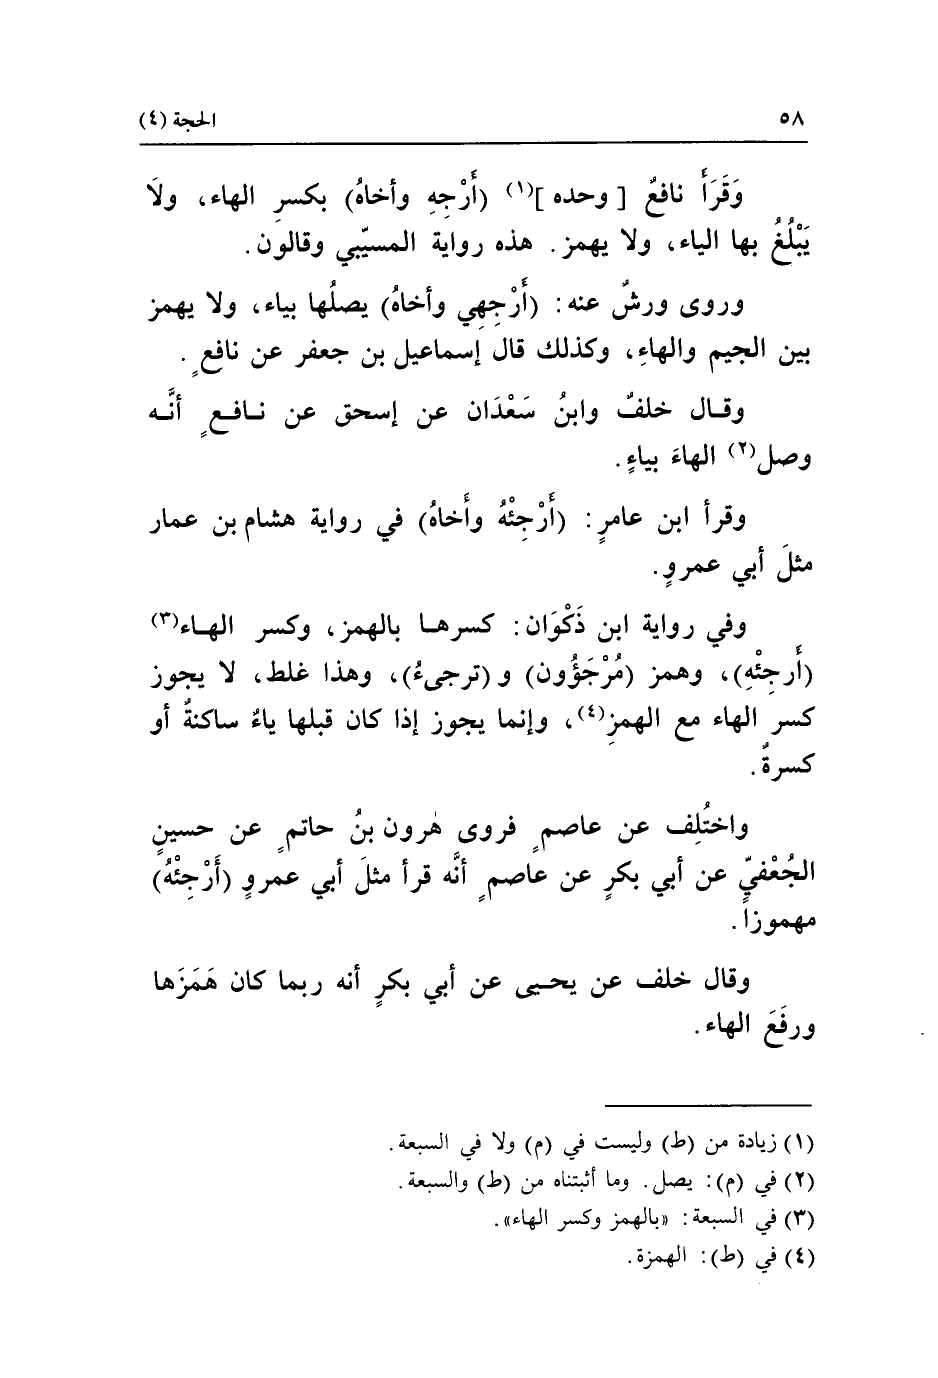 ٥٨ الحجة (٤)
وَقَرَأَ نافعٌ [ وحده ](١) (أَرْجِهِ وأخاهُ) بكسرِ الهاء، ولَا
يَبْلُغُ بها الياء، ولا يهمز. هذه رواية المسيّبي وقالون.
وروى ورشٌ عنه: (أَرْجِهِي وأخاهُ) يصلُها بياء، ولا يهمز
بين الجيمِ والهاءِ، وكذلك قال إسماعيل بن جعفر عن نافعٍ.
وقـال خلفٌ وابنُ سَعْدَان عن إسحق عن نـافـعٍ أنَّـه
وصل(٢) الهاءَ بياءٍ.
وقرأ ابن عامرٍ: (أَرْجِئْهُ وأَخاهُ) في رواية هشام بن عمار
مثلَ أبي عمروٍ.
وفي رواية ابن ذَكْوَان: كسرهـا بالهمز، وكسر الهـاء(٣)
(أَرجِئْهِ)، وهمز (مُرْجَؤُون) و (ترجىءُ)، وهذا غلط، لا يجوز
كسر الهاء مع الهمزِ(٤)، وإنما يجوز إذا كان قبلها ياءٌ ساكنةٌ أو
كسرةٌ.
واختُلِف عن عاصمٍ فروى هٰرون بنُ حاتمٍ عن حسينٍ
الجُعْفيّ عن أبي بكرٍ عن عاصمٍ أنَّه قرأ مثلَ أبي عمروٍ (أَرْجِئْهُ)
مهموزاً.
وقال خلف عن يحـيى عن أبي بكرٍ أنه ربما كان هَمَزَها
ورفَعَ الهاء.
(١) زيادة من (ط) وليست في (م) ولا في السبعة.
(٢) في (م): يصل. وما أثبتناه من (ط) والسبعة.
(٣) في السبعة: «بالهمز وكسر الهاء».
(٤) في (ط): الهمزة.